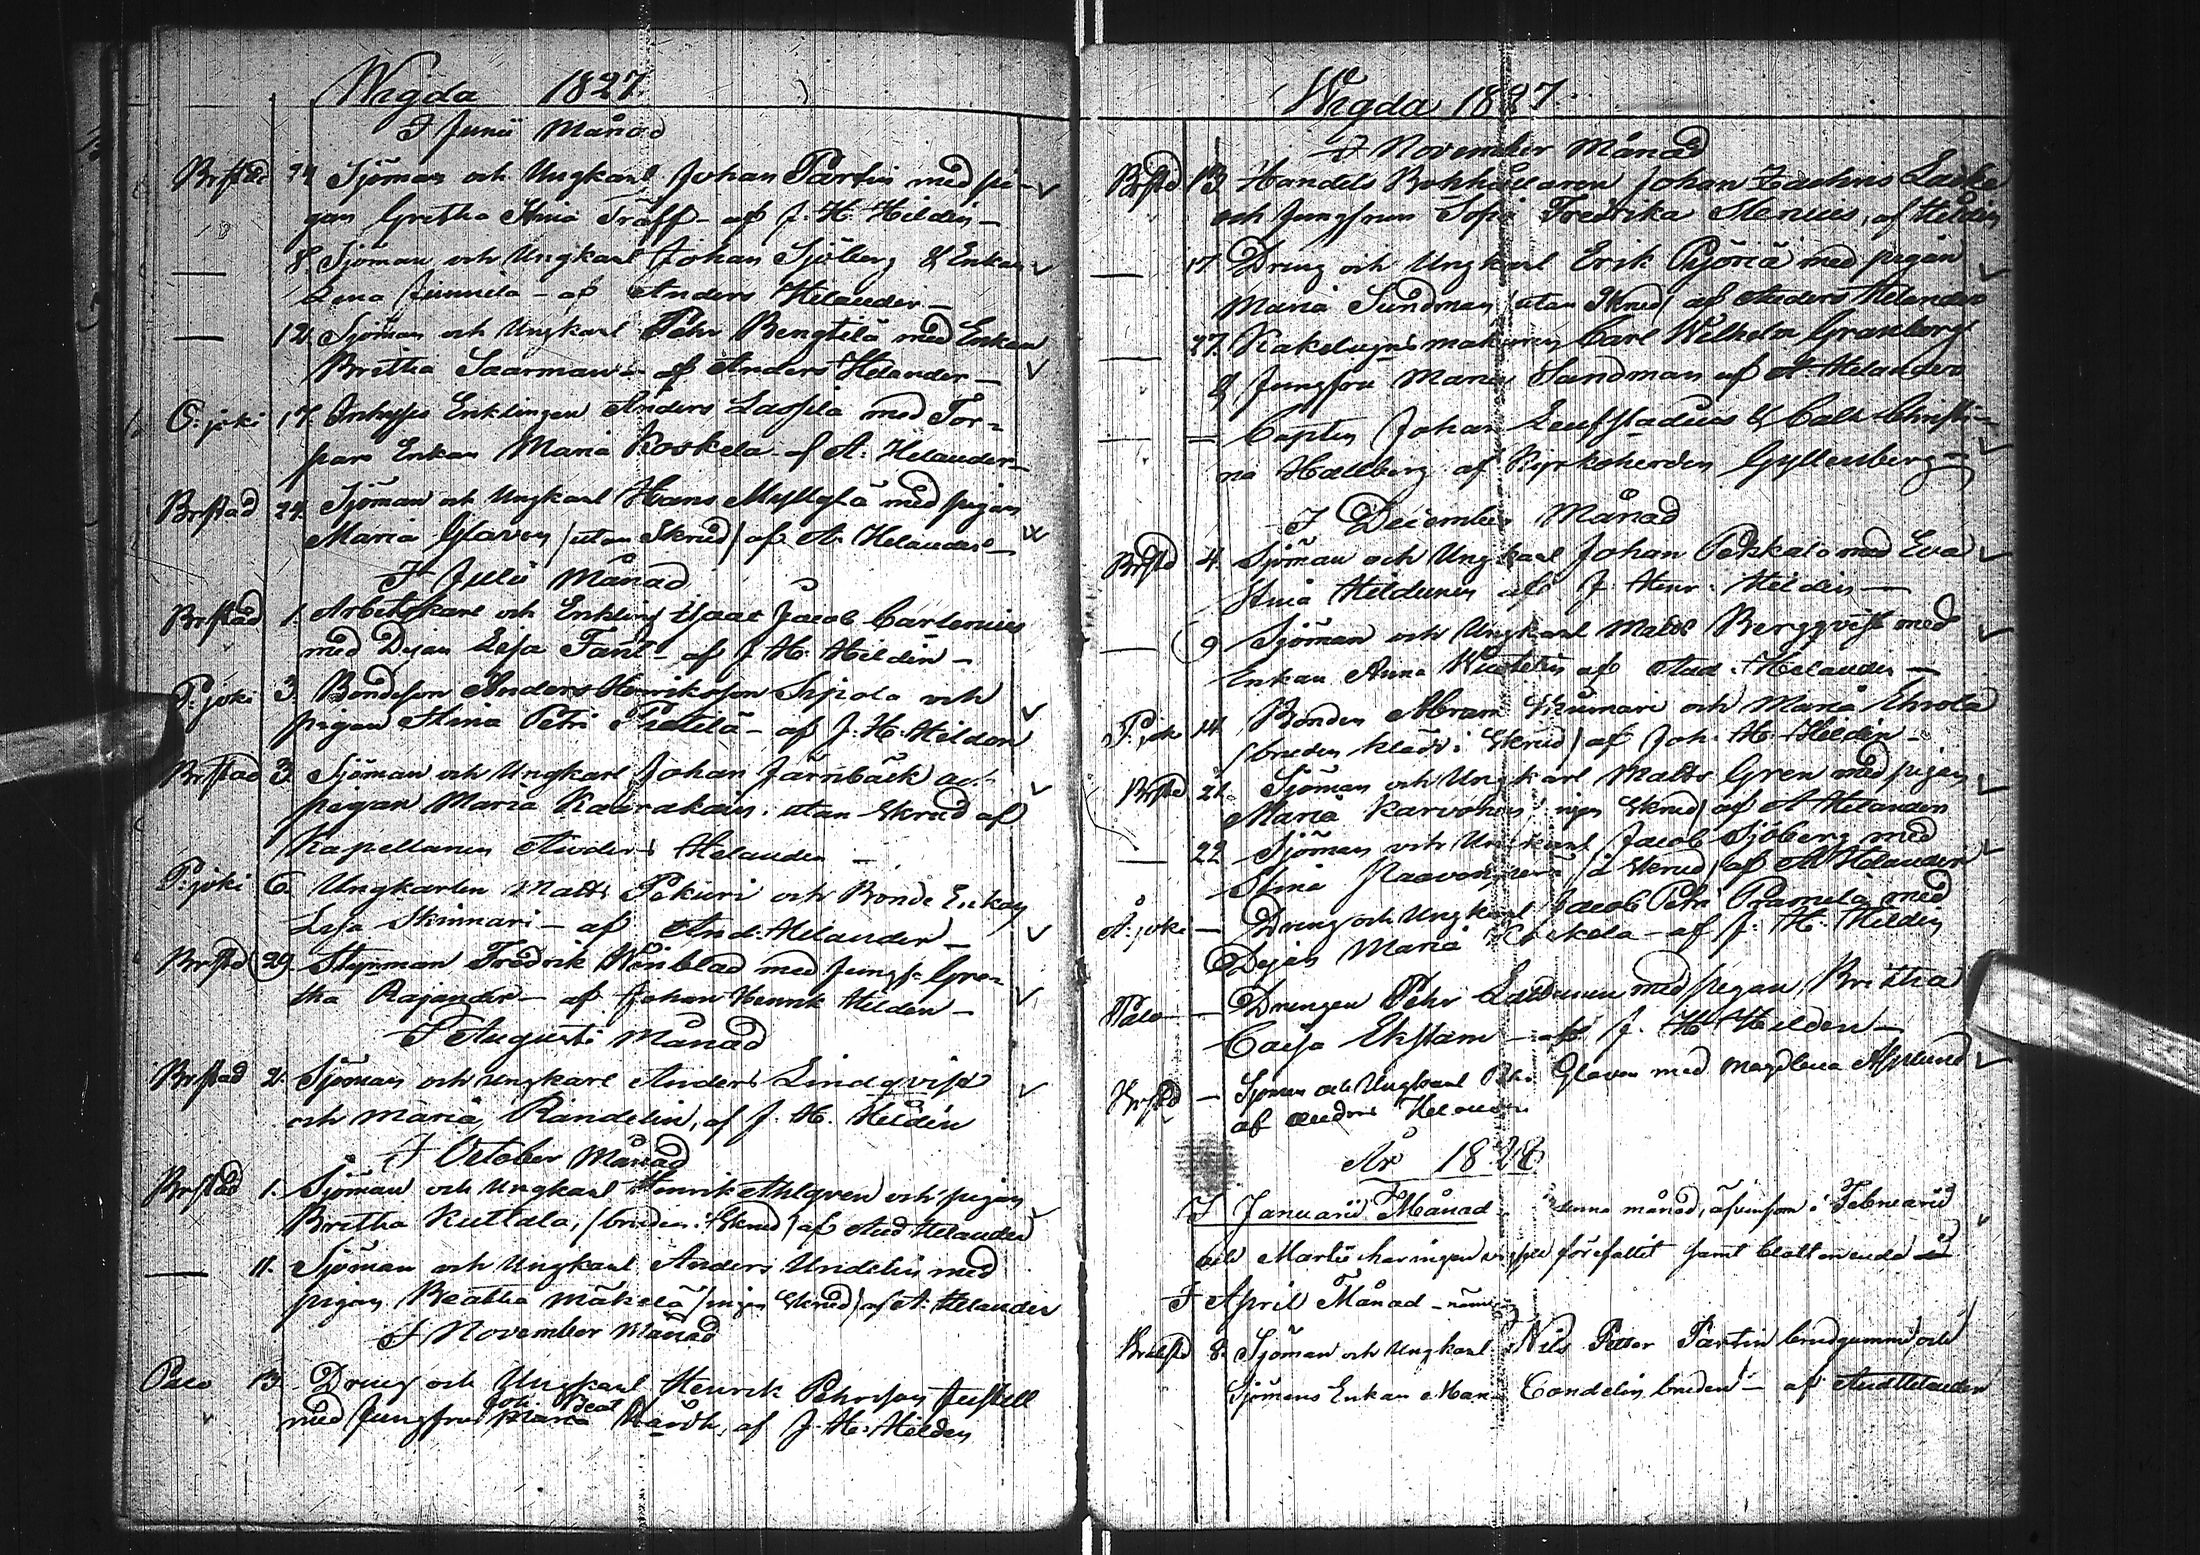 Wigda 1827
I Junii Månad
Brstad 24 Sjöman och Ungkarl Johan Partin med pi-
gan Gretha Stina Träff - af J. H. Heldén -
— 8. Sjöman och Ungkarl Johan Sjöberg & Enkan
Lena - af Anders Helander -
— 12. Sjöman och Ungkarl Pehr Bengtilä med Enkan
Britha Saarman - af Anders Helander -
O: joki 17. Inhyses Enklingen Anders med Tor-
pare Enkan Maria Koskela - af A: Helander -
Brstad 24. Sjöman och Ungkarl Hans med pigan
Maria Glaven /utan Skrud/ af A. Helander -
I Julii Månad
Brstad 1. Arbetskarl och Enkling Isaac Jacob Carlenius
med Dejan Lisa - af J. H. Heldén -
P: joki 3. Bondeson Anders Henriksson Sipola och
pigan Stina Petri Pietilä - af J. H. Heldén
Brstad 3. Sjöman och Ungkarl Johan Järnbäck och
pigan Maria utan Skrud af
Kapellanen Anders Helander -
P: joki 6. Ungkarlen Matts Pekuri och Bonde Enkan
Lisa Skinnari - af And: Helander -
Brstad 29. Styrman Fredrik Winblad med Jungf: Gre-
tha Rajander - af Johan Henrik Heldén -
I Augusti Månad
Brstad 2. Sjöman och Ungkarl Anders Lindqvist
och Maria Randelin, af J. H. Heldén
I October Månad
Brstad 1. Sjöman och Ungkarl Henrik Ahlgren och pigan
Britha Kuttala, /bruden i Skrud/ af And: Helander
— 11. Sjöman och Ungkarl Anders Undelin med
pigan Beatha Mäkelä /ingen Skrud/ af A: Helander
I November Månad
Palo 13. Dreng och Ungkarl Henrik Pehrsson Justell
Joh: Beat
med Jungfru Maria af J. H. Heldén
Wigda 1827
I November Månad
Brstd 13 Handels Bokhållaren Johan Zachris
och Jungfrun Sofia Fredrika Stenius, af Heldén
— 17 Dreng och Ungkarl Erik Pyöriä med pigan
Maria Sundman /utan Skrud/ af Anders Helander
— 27. Kakelugnsmakaren Carl Wilhelm Granberg
& Jungfru Maria Sandman af A. Helander
— — Capten Johan & Christi-
na Hallberg af Kyrkoherden Gyllenberg
I December Månad
Brstd 4. Sjöman och Ungkarl Johan Pekkala med Eva
Stina af J. Henr: Heldén -
— 9 Sjöman och Ungkarl Matts Bergqvist med
Enkan Anna af And: Helander -
P: jok 14 Bonden Abram och Maria
/bruden klädd i Skrud/ af Joh. H. Heldén -
Brstd 21. Sjöman och Ungkarl Matts Gren med pigan
Maria Karvonen /ingen Skrud/ af A Helander
— 22 Sjöman och Ungkarl Jacob Sjöberg med
Stina /i Skrud/ af A Helander
— Dreng och Ungkarl Jacob Petri med
Dejan Maria Koskela - af J. H. Heldén
Palo — Drengen Pehr med pigan Britha
Caisa Ekstam - af J. H. Heldén -
Brstd — Sjöman och Ungkarl Glaven med Magdlena Asplund
af Anders Helander
År 1828
I Januarii Månad denna månad, äfvensom i Februarii
och Martii har ingen vigsel förefallit
I April Månad - näml
Brdstd 8. Sjöman och Ungkarl Nils Petter Partin brudgumme och
Sjömans Enkan Maria Condelin bruden - af And Helander